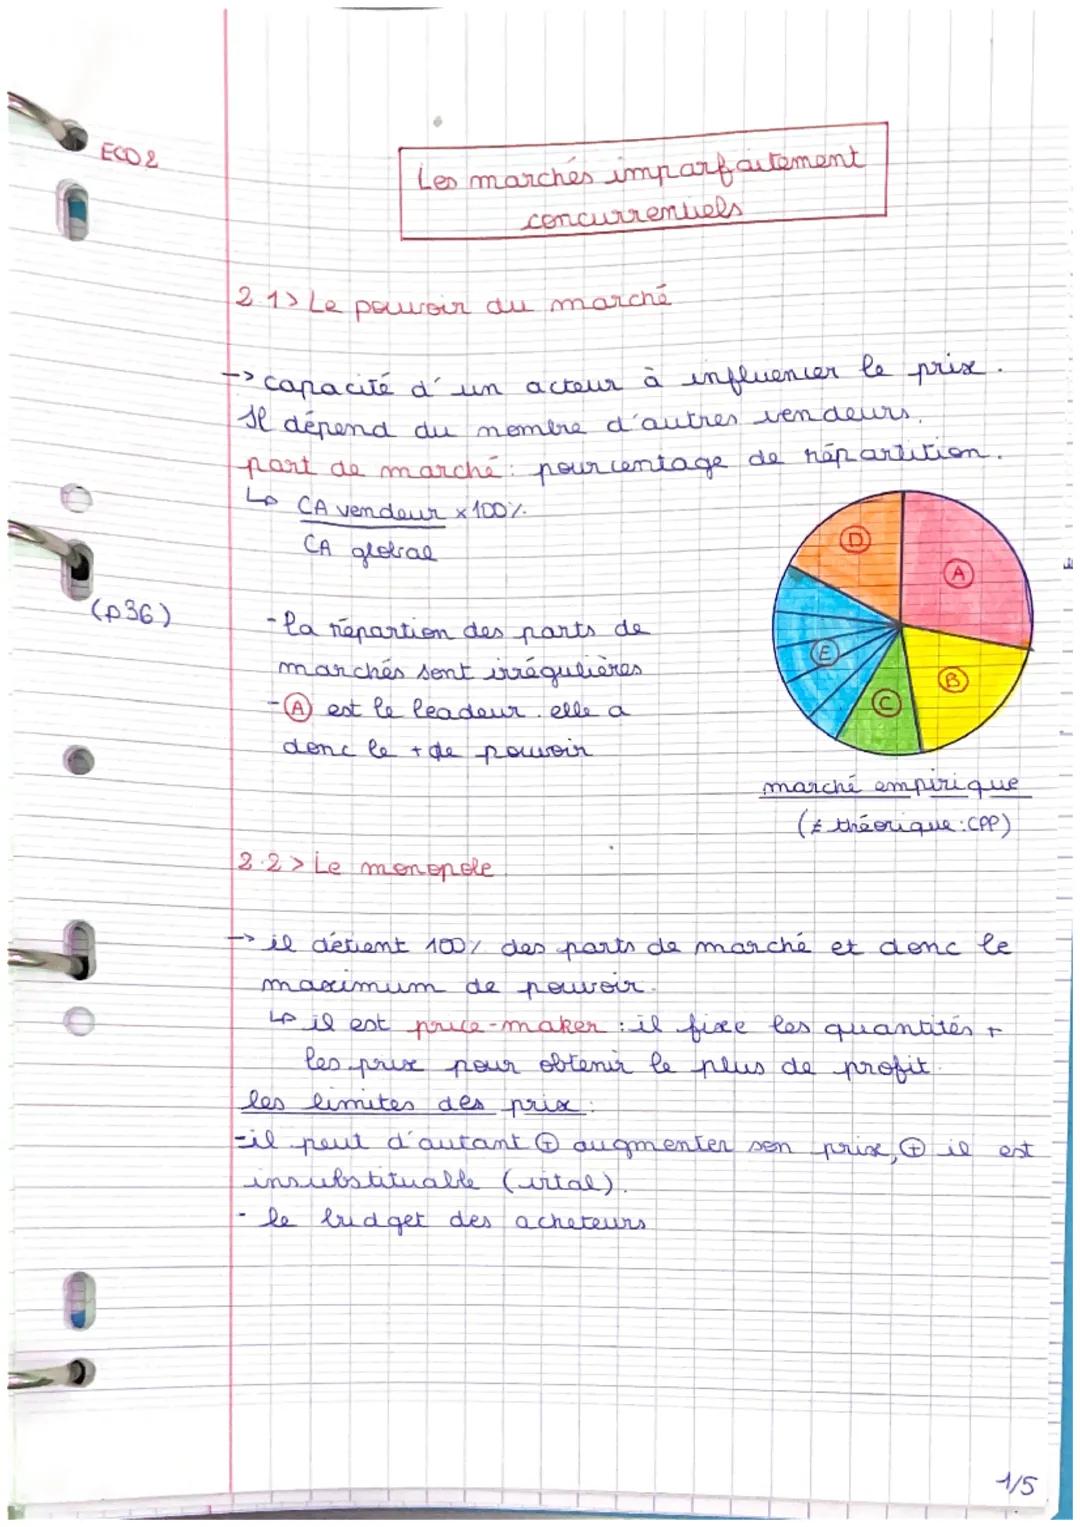 ECO 2
Les marchés imparfaitement
concurrentiels
2.1> Le pouvoir du marché
-> capacité d'un acteur à influencer le prix.
Il dépend du nombre d'autres vendeurs.
part de marché : pourcentage de répartition.
↳ CA vendeur x 100%
CA global
(p36)
- la répartion des parts de
marchés sont irrégulières
- A est le leadeur. elle a
donc le + de pouvoir
D
A
E
B
C
marché empirique
(≠ théorique : CPP)
2.2> Le monopole
-> il détient 100% des parts de marché et donc le
maximum de pouvoir.
↳ il est price-maker : il fixe les quantités +
les prix pour obtenir le plus de profit.
les limites des prix :
- il peut d'autant + augmenter son prix, + il est
insubstituable (vital).
- le budget des acheteurs
1/5